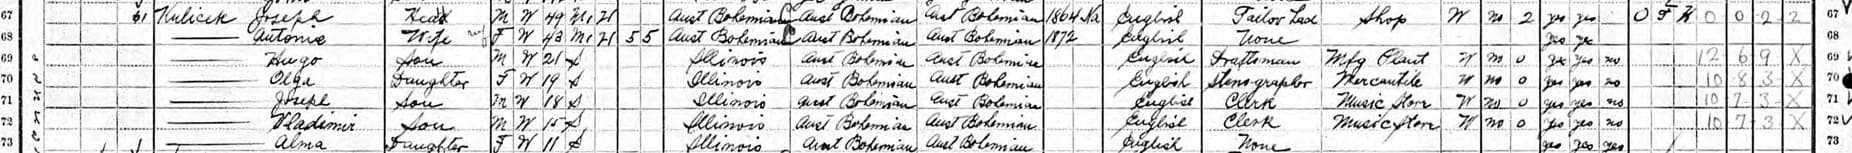 67 Kulicek Joseph Head M W 49 M1 21 Aust Bohemian Aust Bohemian Aust Bohemian 1864 Na English Tailor Shop W no 2 yes yes O F H 0 0 2 2 67
68 —— Antonie Wife F W 43 M1 21 5 5 Aust Bohemian Aust Bohemian Aust Bohemian 1872 English None yes yes 68
69 —— Hugo Son M W 21 S Illinois Aust Bohemian Aust Bohemian English Draftsman Mfg Plant W no 0 yes yes no 12 6 9 X 69
70 —— Olga Daughter F W 19 S Illinois Aust Bohemian Aust Bohemian English Stenographer Mercantile W no 0 yes yes no 10 8 3 X 70
71 —— Joseph Son M W 18 S Illinois Aust Bohemian Aust Bohemian English Clerk Music Store W no 0 yes yes no 10 7 3 X 71
72 —— Vladimir Son M W 15 S Illinois Aust Bohemian Aust Bohemian English Clerk Music Store W no 0 yes yes no 10 7 3 X 72
73 —— Alma Daughter F W 11 S Illinois Aust Bohemian Aust Bohemian English None yes yes yes 73